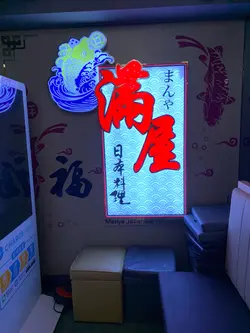 まんや
満屋
日本料理
Manya Japanese
福